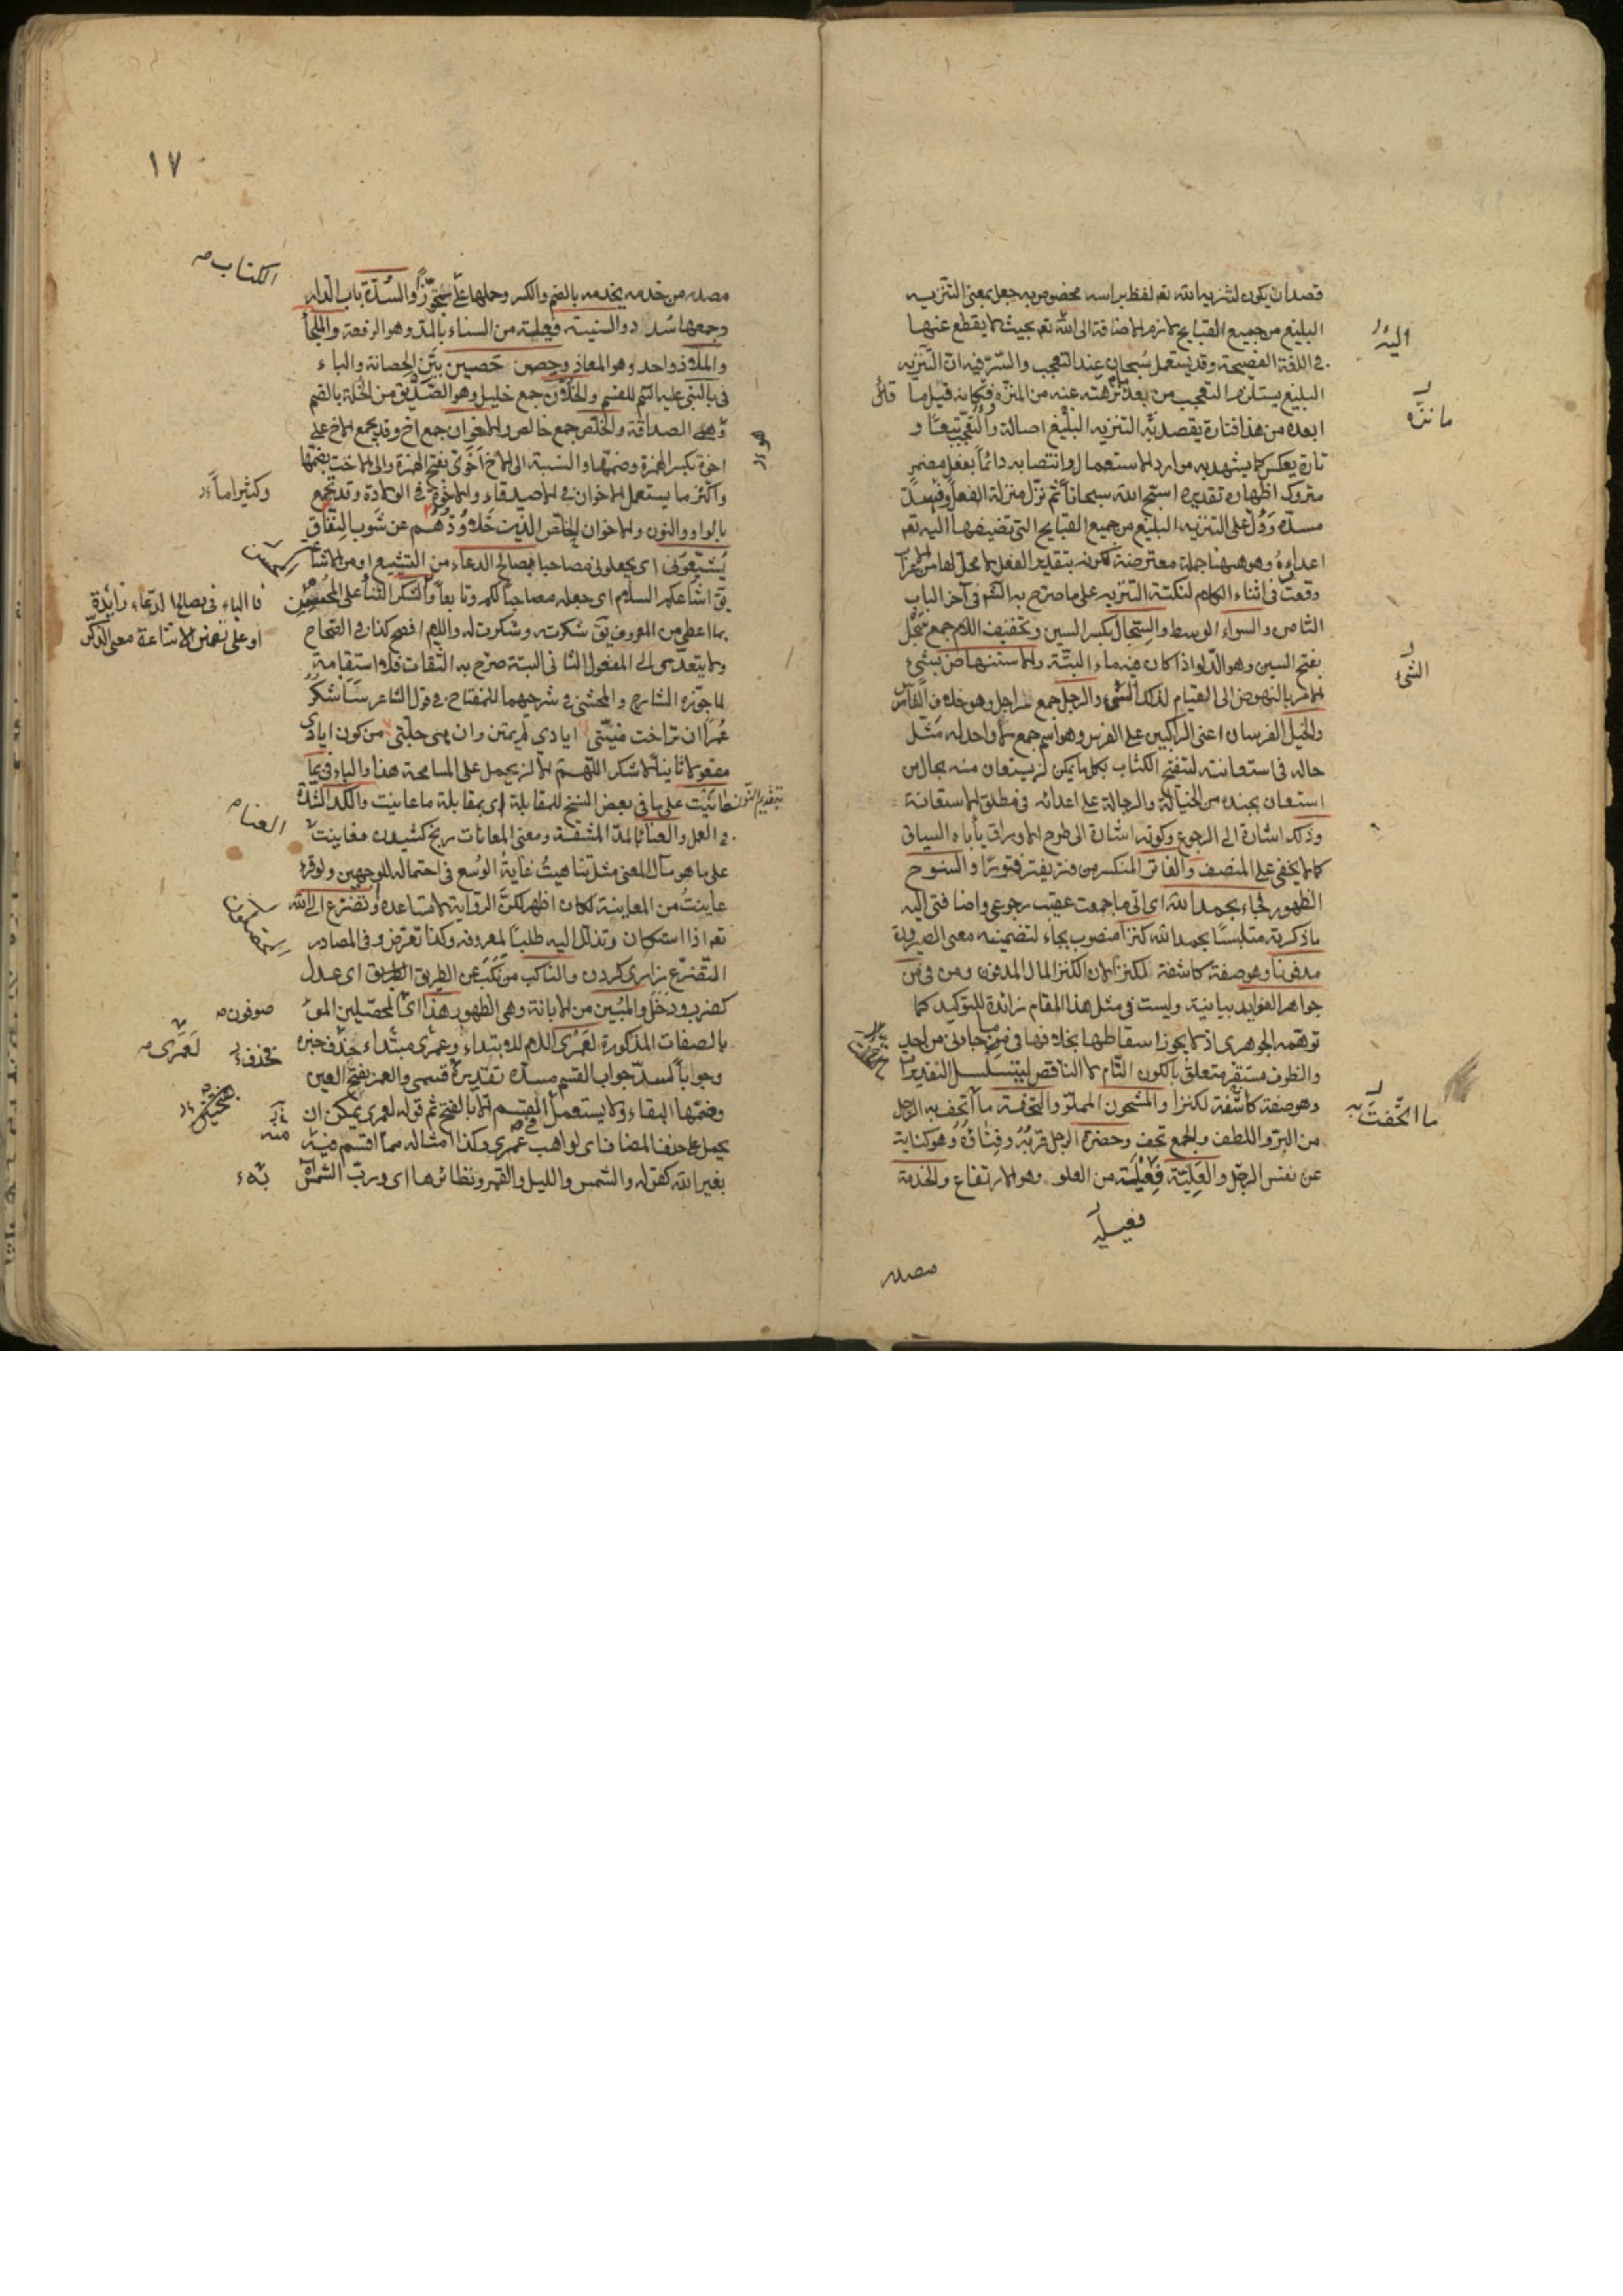 قصدان يكون لتنزيه الله تعم لفظ براسه مخصوص به جعل بمعنى التنزيه
البليغ من جميع القبايح لازم الاضافة الى الله تعم بحيث لا يقطع عنها
في اللغة الفصيحة وقد يستعمل سبحان عند التعجب والسّرّ فيه ان التّنزيه
البليغ يستلزم التعجب من بعد ما نزهته عنه من المنزه فكانه قيل ما
ابعده من هذا فتارة يقصد به التنزيه البليغ اصالة والتعجّب تبعًا و
تارة يعكس كما يشهد به موارد الاستعمال وانتصابه دائما بفعل مضمر
متروك اظهاره تقديره اسبّح الله سبحاناً ثم نزّل منزلة الفعل وفسدّ
مسدّه ودلّ على التنزيه البليغ من جميع القبايح التى تضيفها اليه تعم
اعداءهُ وهو ههنا جملة معترضة لكونه بتقدير الفعل لا محلّ لها من الاعراب
وقعت فى اثناء الكلام لنكتة التنزيه على ما صرّح به الشّم فى آخر الباب
الثامن والسواء الوسط والسِّجال بكسر السين وتخفيف اللام جمع سَجْل
بفتح السين وهو الدّلو اذا كان فيه ماء البتّة والاستنهاض بشىء
الامر بالنهوض الى القيام لذلك الشىء والرجل جمع راجل وهو خلاف الفارس
والخيل الفرسان اعنى الراكبين على الفرس وهو اسم جمع لا واحد له مثّل
حاله فى استعانته لتفتح الكتاب بكل ما يمكن ان يستعان منه بحال من
استعان بجنده من الخيّالة والرجالة على اعدائه فى مطلق الاستعانة
وذلك اشارة الى الرجوع وكونه اشارة الى طرح الاوراق يأباه السياق
كما لا يخفى على المنصف والفاتر المنكسر من فتر يفتر فتورًا والسنوح
الظهور فجاء بحمد الله اى اتى ما جمعت عقيب رجوعى واضافتى اليه
ما ذكرته متلبسًا بحمد الله كنزا منصوب بجاء لتضمينه معنى الصيرورة
مدفونا وهو صفة كاشفة لكنزا لان الكنز المال المدفون ومن فى من
جواهر الفوايد بيانية وليست فى مثل هذا المقام زائدة للتوكيد كما
توهمه الجوهرى اذ لا يجوز اسقاطها بخلافها فى ما جاءنى من احد
والظرف مستقر متعلق بالكون التّام لا الناقص ليتسلسل التقديرات
وهو صفة كاشفة لكنزا والمشحون المملوّ والتحفة ما اتحف به الرجل
من البرّ واللطف والجمع تحف وحضرة الرجل قربه وفِناؤه وهو كناية
عن نفس الرجل والعَلِيّة فِعْيلَة من العلو وهو الارتفاع والخدمة
فعيلة
مصدر
اليه
ما نزّه
قال
الشىء
ما اتّحفتَ به
١٧
مصدر من خدمه يخدمه بالضم والكسر وحملها على تجوّزٌ والسُدّة باب الدار
وجمعها سُدد والسنية فعيلة من السناء بالمدّ وهو الرفعة والملجأ
والملاذ واحد وهو المعاذ وحصن حَصين بيّن الحصانة والباء
فى بالنبى عليه السّم للقسم والخُلّان جمع خليل وهو الصّديق من الخُلة بالضم
وهى الصداقة والخُلّص جمع خالص والاخوان جمع اخ وقد يجمع الاخ على
اخوة بكسر الهمزة وضمّها والنسبة الى الاخ اَخَوىّ بفتح الهمزة والى الاخت بضمّها
واكثر ما يستعمل الاخوان فى الاصدقاء والاخوة فى الولادة وقد يجمع
بالواو والنون والاخوان الخلّص الذين خلا وُدّهُم عن شوب النفاق
يُشيّعُونى اى يجعلونى مصاحبا بصالح الدعاء من التشييع او من الاشاعة
يق اشاعكم السلام اى جعله مصاحبًا لكم وتابعاً والشكر الثناء على المحسن
بما اعطى من المعروف يق شكرته وشكرت له واللام افصح كذا فى الصّحاح
ولا يتعدّى الى المفعول الثانى البتة صرّح به الثّقات فلا استقامة
لما جوّزه الشارح والمحشى فى شرحيهما للمفتاح فى قول الشاعر سَاَشكُرُ
عُمرًا ان تراخت منيّتى ايادى لم يمتن وان هى جلّتِ من كون ايادى
مفعولا ثانيا لاشكر اللهُمّ الا ان يحمل على المسامحة هذا والباء فى بما
عانيت على ما فى بعض النسخ للمقابلة اى بمقابلة ما عانيت والكدّ الشدّة
فى العمل والعناء بالمدّ المشقة ومعنى المعانات رنج كشيدن فعانيت
على ما هو مآل المعنى مثل تناهيتُ غاية الوُسع فى احتماله للوجهين ولو قرئ
عاينتُ من المعاينة لكان اظهر لكنّ الرّواية لا تساعده وتضرّع الى الله
تعم اذا استكان وتذلّل اليه طلبًا لمعروفه وكذا تعرّض وفى المصادر
التّضرّع زارى كردن والناكب من نكَبَ عن الطريق اى عدل
كضرب ودخَل والمُبين من الابانة وهى الظهور هذا اى المحصّلين المو
بالصفات المذكورة لعَمْرى اللام للابتداء وعمرى مبتداء حذف خبره
وجوباً لسدّ جواب القسم مسدّه تقديره قسمى والعمر بفتح العين
وضمّها البقاء ولا يستعمل فى القسم الا بالفتح ثم قوله لعمرى يمكن ان
يحمل على حذف المضاف اى لواهب عمرى وكذا امثاله ممّا اقسم فيه
بغير الله كقوله والشمس والليل والقمر ونظائرها اى وربّ الشّمس
الكتاب صه
وكثيرا ما
فالباء فى بصالح الدعاء زائدة
او على تضمن الاشاعة معنى التذكّر
بتقديم النّون
العنا صه
صوفون صه
لَعَمْرى صه